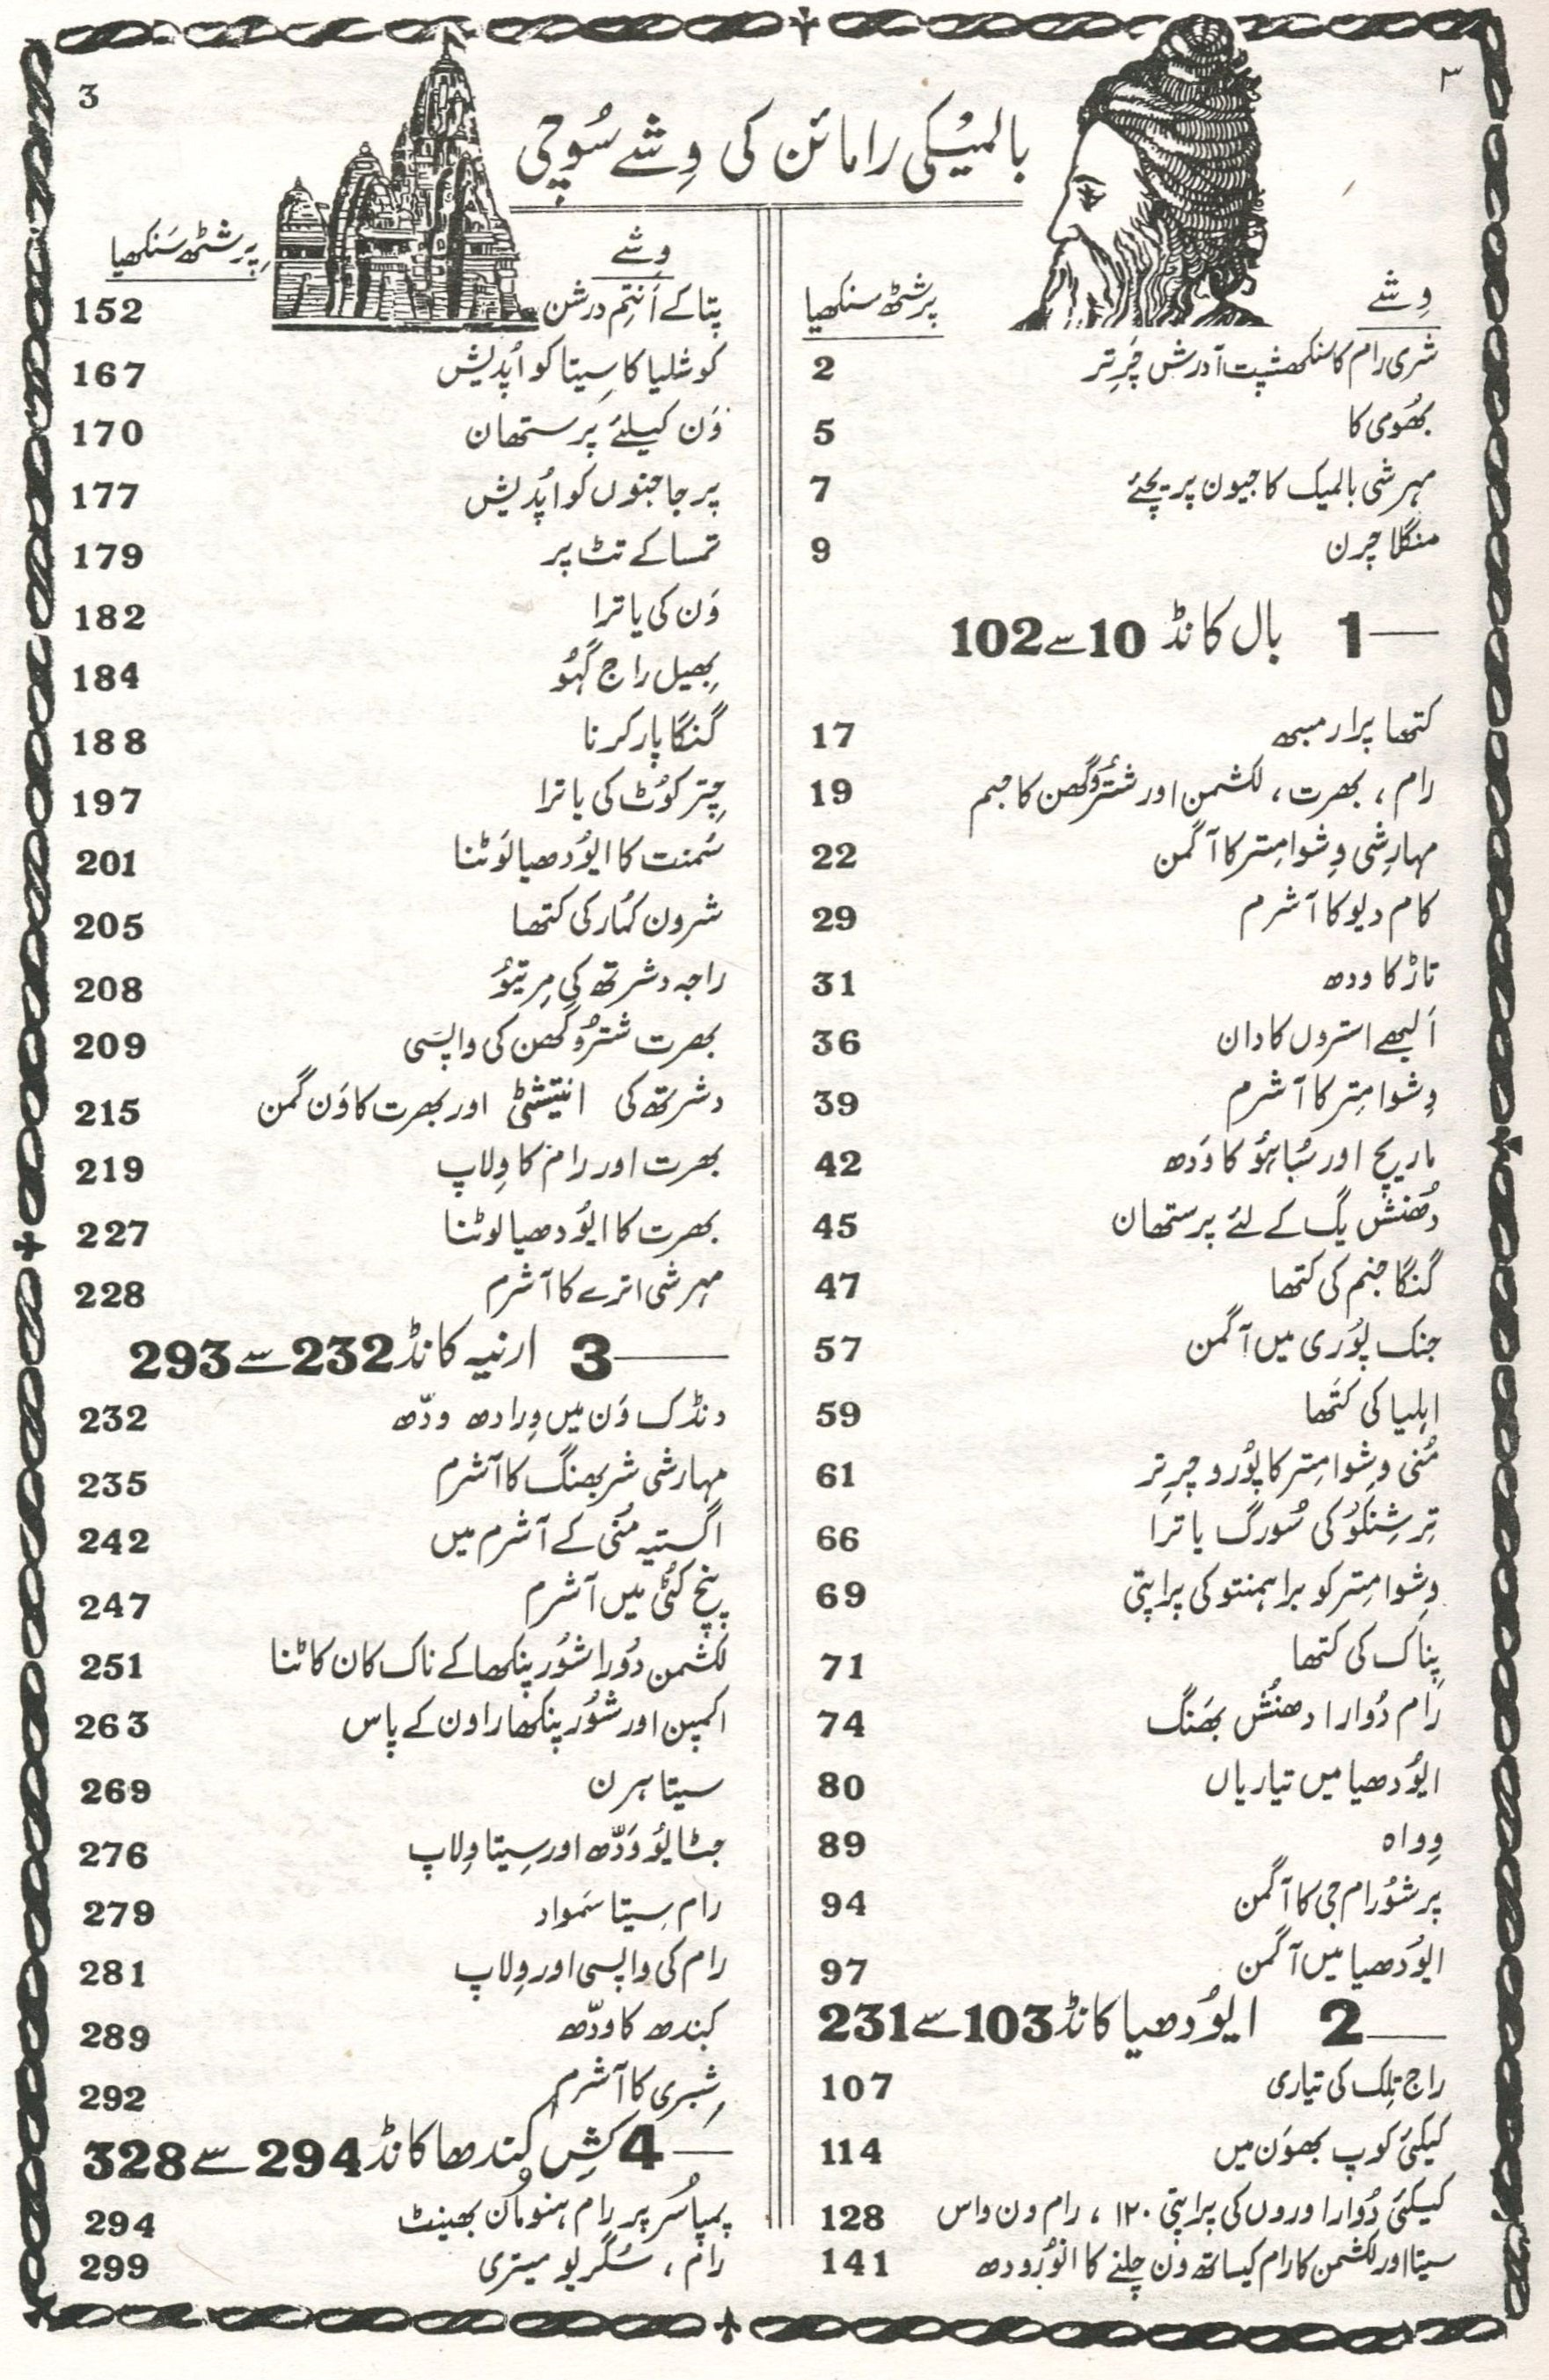 3
۳
بالمیکی رامائن کی وِشے سُوچی
وِشے پرشٹھ سنکھیا
شری رام کا سنکھشپت آدرش چَرِتر 2
بھُومی کا 5
مہرشی بالمیک کا جیون پریچئے 7
منگلا چرن 9
1 بال کانڈ 10 سے 102
کتھا پرارمبھ 17
رام ، بھرت ، لکشمن اور شترُوگھن کا جنم 19
مہارِشی وِشوامِتر کا آگمن 22
کام دیو کا آشرم 29
تاڑکا ودھ 31
اَلبھے استروں کا دان 36
وِشوامِتر کا آشرم 39
ماریچ اور سُباہُو کا وَدھ 42
دھُنش یگ کے لئے پرستھان 45
گنگا جنم کی کتھا 47
جنک پُوری میں آگمن 57
اہلیا کی کتھا 59
مُنی وِشوامِتر کا پُورو چرِتر 61
تِرشِنکُو کی سُورگ یاترا 66
وِشوامِتر کو براہمنتو کی پراپتی 69
پِناک کی کتھا 71
رام دُوارا دھنُش بھَنگ 74
ایُودھیا میں تیاریاں 80
وِواہ 89
پرشُورام جی کا آگمن 94
ایُودھیا میں آگمن 97
2 ایُودھیا کانڈ 103 سے 231
راج تِلک کی تیاری 107
کیکئی کوپ بھوَن میں 114
کیکئی دُوارا وروں کی پراپتی ۱۲۰ ، رام ون واس 128
سیتا اور لکشمن کا رام کیساتھ ون چلنے کا انُورودھ 141
وِشے پرشٹھ سَنکھیا
پِتا کے اَنتِم درشن 152
کوشلیا کا سِیتا کو اُپدیش 167
وَن کیلئے پرستھان 170
پرجا جنوں کو اُپدیش 177
تمسا کے تٹ پر 179
وَن کی یاترا 182
بِھیل راج گُہُو 184
گنگا پار کرنا 188
چِتر کُوٹ کی یاترا 197
سُمنت کا ایُودھیا لَوٹنا 201
شرون کُمار کی کتھا 205
راجہ دشرتھ کی مِرتیُو 208
بھرت شترُوگھن کی واپسَی 209
دشرتھ کی انتیشٹی اور بھرت کا وَن گمن 215
بھرت اور رام کا وِلاپ 219
بھرت کا ایُودھیا لوٹنا 227
مہرشی اترے کا آشرم 228
3 ارنیہ کانڈ 232 سے 293
دنڈک وَن میں وِرادھ ودّھ 232
مہارشی شربھنگ کا آشرم 235
اگستیہ مُنی کے آشرم میں 242
پنچ کُٹی میں آشرم 247
لکشمن دُورا شُورپنکھا کے ناک کان کاٹنا 251
اکمپن اور شُورپنکھا راون کے پاس 263
سیتا ہرن 269
جٹایُو وَدّھ اور سِیتا وِلاپ 276
رام سِیتا سَمواد 279
رام کی واپسی اور وِلاپ 281
کبندھ کا ودّھ 289
شِبری کا آشرم 292
4 کشِ کندھا کانڈ 294 سے 328
پمپاسُر پر رام ہنومان بھینٹ 294
رام ، سُگریو میتری 299